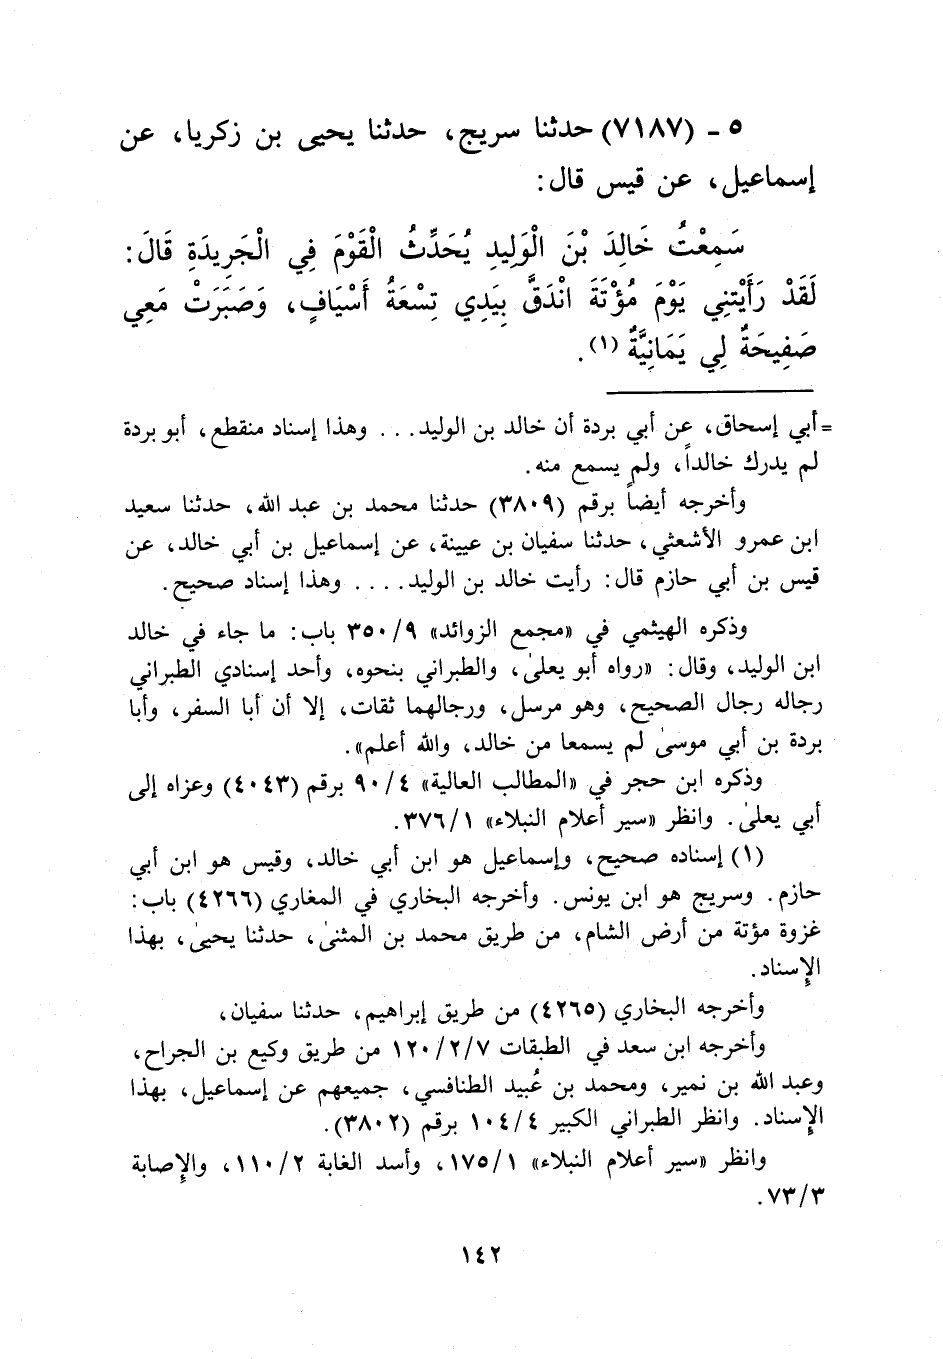 ٥ ـ (٧١٨٧) حدثنا سريج، حدثنا يحيى بن زكريا، عن
إسماعيل، عن قيس قال:
سَمِعْتُ خَالِدَ بْنَ الْوَلِيدِ يُحَدِّثُ الْقَوْمَ فِي الْجَرِيدَةِ قَالَ:
لَقَدْ رَأَيْتنِي يَوْمَ مُؤْتَةَ انْدَقَّ بِيَدِي تِسْعَةُ أَسْيَافٍ، وَصَبَرَتْ مَعِي
صَفِيحَةٌ لِي يَمَانِيَّةٌ (١).
=أبي إسحاق، عن أبي بردة أن خالد بن الوليد... وهذا إسناد منقطع، أبو بردة
لم يدرك خالداً، ولم يسمع منه.
وأخرجه أيضاً برقم (٣٨٠٩) حدثنا محمد بن عبد الله، حدثنا سعيد
ابن عمرو الأشعثي، حدثنا سفيان بن عيينة، عن إسماعيل بن أبي خالد، عن
قيس بن أبي حازم قال: رأيت خالد بن الوليد.... وهذا إسناد صحيح.
وذكره الهيثمي في «مجمع الزوائد» ٣٥٠/٩ باب: ما جاء في خالد
ابن الوليد، وقال: «رواه أبو يعلىٰ، والطبراني بنحوه، وأحد إسنادي الطبراني
رجاله رجال الصحيح، وهو مرسل، ورجالهما ثقات، إلا أن أبا السفر، وأبا
بردة بن أبي موسىٰ لم يسمعا من خالد، والله أعلم».
وذكره ابن حجر في «المطالب العالية» ٩٠/٤ برقم (٤٠٤٣) وعزاه إلى
أبي يعلىٰ. وانظر «سير أعلام النبلاء» ٣٧٦/١.
(١) إسناده صحيح، وإسماعيل هو ابن أبي خالد، وقيس هو ابن أبي
حازم. وسريج هو ابن يونس. وأخرجه البخاري في المغاري (٤٢٦٦) باب:
غزوة مؤتة من أرض الشام، من طريق محمد بن المثنىٰ، حدثنا يحيىٰ، بهذا
الإسناد.
وأخرجه البخاري (٤٢٦٥) من طريق إبراهيم، حدثنا سفيان،
وأخرجه ابن سعد في الطبقات ١٢٠/٢/٧ من طريق وكيع بن الجراح،
وعبد الله بن نمير، ومحمد بن عُبيد الطنافسي، جميعهم عن إسماعيل، بهذا
الإسناد. وانظر الطبراني الكبير ١٠٤/٤ برقم (٣٨٠٢).
وانظر «سير أعلام النبلاء» ١٧٥/١، وأسد الغابة ١١٠/٢، والإصابة
٧٣/٣.
١٤٢